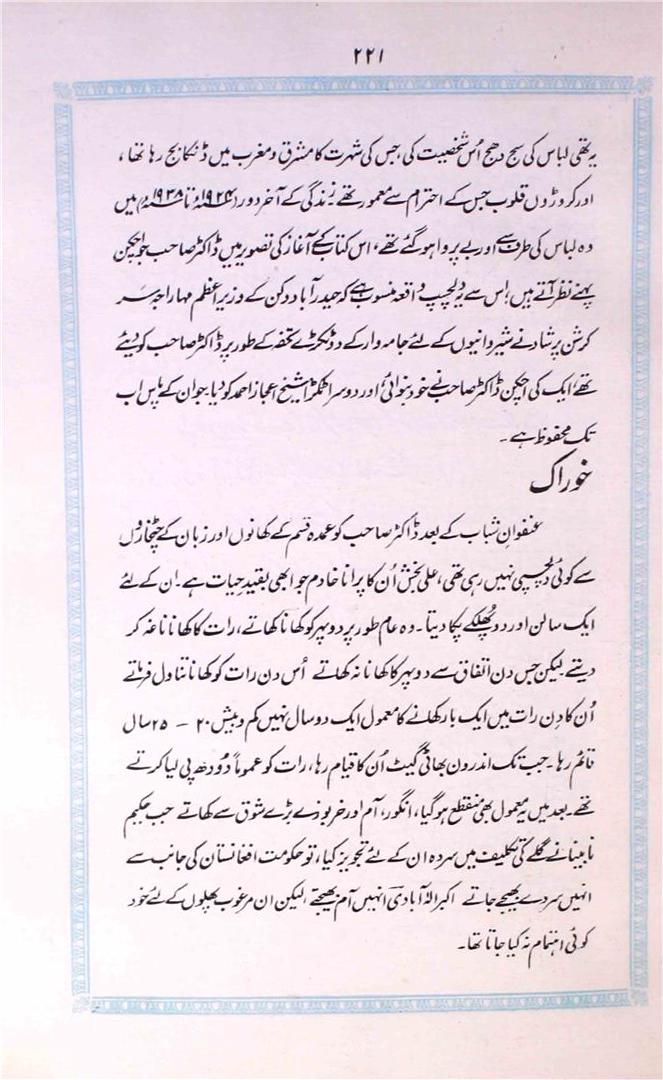 ۲۲۱
یہ تھی لباس کی سج دھج اُس شخصیت کی، جس کی شہرت کا مشرق و مغرب میں ڈنکا بج رہا تھا،
اور کروڑوں قلوب جس کے احترام سے معمور تھے۔ زندگی کے آخر دور (۱۹۲۴ء تا ۱۹۳۸ء) میں
وہ لباس کی طرف سے اور بے پروا ہو گئے تھے، اس کتاب کے آغاز کی تصویر میں ڈاکٹر صاحب جو اچکن
پہنے نظر آتے ہیں؛ اس سے یہ دلچسپ واقعہ منسوب ہے کہ حیدرآباد دکن کے وزیر اعظم مہاراجہ سر
کرشن پرشاد نے شیروانیوں کے لئے جامہ وار کے دو ٹکڑے تحفہ کے طور پر ڈاکٹر صاحب کو دیئے
تھے، ایک کی اچکن ڈاکٹر صاحب نے خود بنوائی اور دوسرا ٹکڑا شیخ اعجاز احمد کو دیا۔ جو ان کے پاس اب
تک محفوظ ہے۔
خوراک
عنفوانِ شباب کے بعد ڈاکٹر صاحب کو عمدہ قسم کے کھانوں اور زبان کے چٹخاروں
سے کوئی دلچسپی نہیں رہی تھی، علی بخش اُن کا پرانا خادم جو ابھی بقیدِ حیات ہے۔ ان کے لئے
ایک سالن اور دو پھلکے پکا دیتا۔ وہ عام طور پر دوپہر کو کھانا کھاتے، رات کا کھانا ناغہ کر
دیتے۔ لیکن جس دن اتفاق سے دوپہر کا کھانا نہ کھاتے اُس دن رات کو کھانا تناول فرماتے
اُن کا دن رات میں ایک بار کھانے کا معمول ایک دو سال نہیں کم و بیش ۲۰ - ۲۵ سال
قائم رہا۔ جب تک اندرون بھاٹی گیٹ اُن کا قیام رہا، رات کو عموماً دُودھ پی لیا کرتے
تھے۔ بعد میں یہ معمول بھی منقطع ہو گیا، انگور، آم اور خربوزے بڑے شوق سے کھاتے جب حکیم
نابینا نے گلے کی تکلیف میں سردہ ان کے لئے تجویز کیا، تو حکومت افغانستان کی جانب سے
انہیں سردے بھیجے جاتے اکبر الہ آبادی انہیں آم بھیجتے، لیکن ان مرغوب پھلوں کے لئے خود
کوئی اہتمام نہ کیا جاتا تھا۔